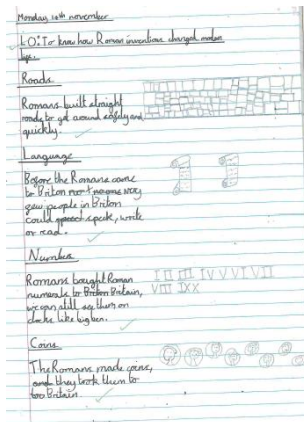 Monday 14th november
LO: To know how Roman inventions changed modern
life.
Roads
Romans built straight
roads to get around safely and
quickly.
Language
Before the Romans came
to Briton not + very
few people in Briton
could speak, write
or read.
Number
Romans bought Roman
numerals to Briton Britain,
we can still see them on
clocks like big ben.
I II III IV V VI VII
VIII IX X
Coins
The Romans made coins,
and they took them to
Britain.